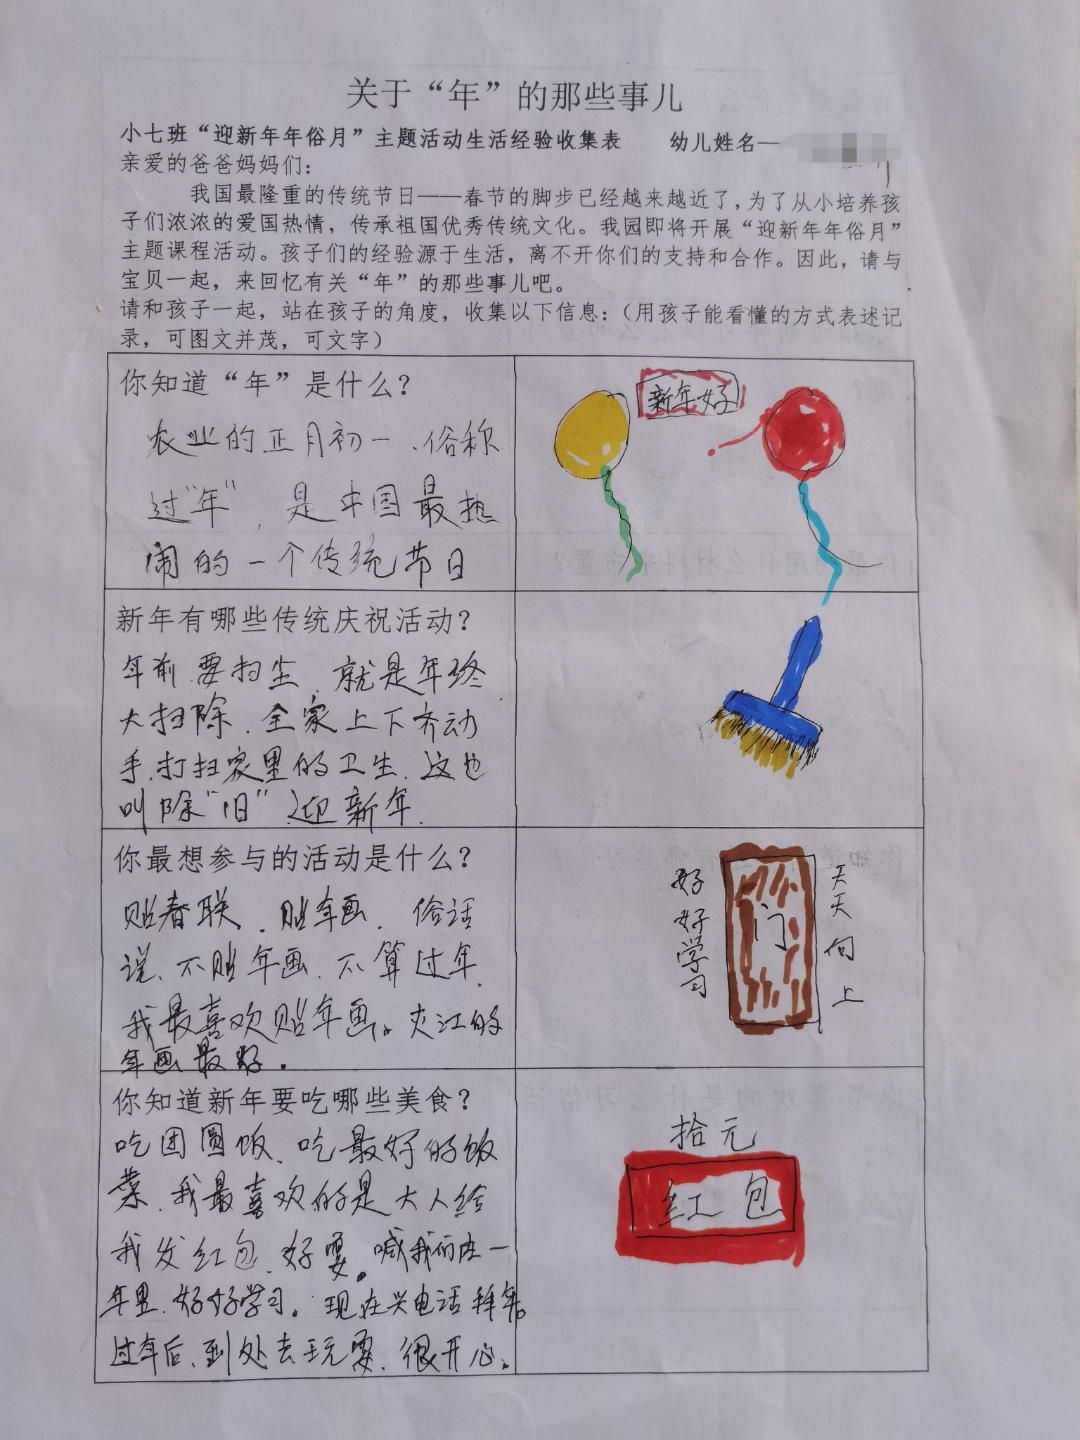 关于“年”的那些事儿
小七班“迎新年年俗月”主题活动生活经验收集表 幼儿姓名—
亲爱的爸爸妈妈们:
我国最隆重的传统节日——春节的脚步已经越来越近了,为了从小培养孩
子们浓浓的爱国热情,传承祖国优秀传统文化。我园即将开展“迎新年年俗月”
主题课程活动。孩子们的经验源于生活,离不开你们的支持和合作。因此,请与
宝贝一起,来回忆有关“年”的那些事儿吧。
请和孩子一起,站在孩子的角度,收集以下信息:(用孩子能看懂的方式表述记
录,可图文并茂,可文字)
你知道“年”是什么?
农业的正月初一、俗称
过“年”,是中国最热
闹的一个传统节日
新年好
新年有哪些传统庆祝活动?
年前要扫尘、就是年终
大扫除、全家上下齐动
手、打扫家里的卫生、这也
叫除“旧”迎新年.
你最想参与的活动是什么?
贴春联、贴年画、俗话
说、不贴年画、不算过年、
我最喜欢贴年画。夹江的
年画最好。
好好学习
门
天天向上
你知道新年要吃哪些美食?
吃团圆饭、吃最好的饭
菜、我最喜欢的是大人给
我发红包、好耍。喊我们在一
年里、好好学习。现在兴电话拜年。
过年后、到处去玩耍、很开心。
拾元
红包